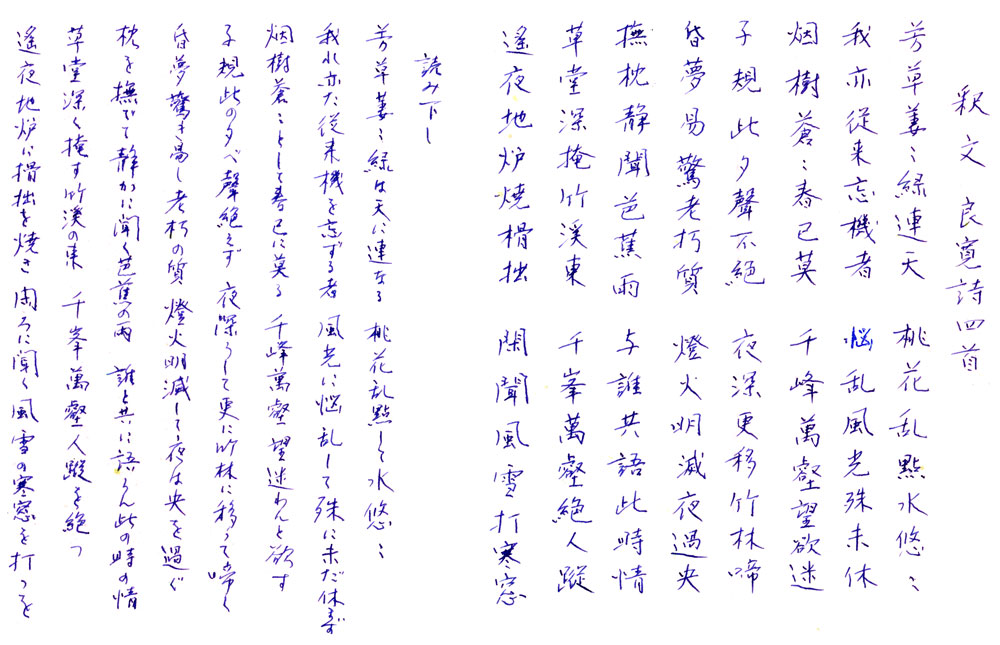 釈文 良寛詩四首
芳草萋〻綠連天 桃花乱點水悠〻
我亦従来忘機者 悩乱風光殊未休
烟樹蒼〻春已莫 千峰萬壑望欲迷
子規此夕聲不絶 夜深更移竹林啼
昏夢易驚老朽質 燈火明滅夜過央
撫枕静聞芭蕉雨 与誰共語此時情
草堂深掩竹渓東 千峯萬壑絶人蹤
遙夜地炉焼榾拙 閑聞風雪打寒窓
読み下し
芳草萋〻綠は天に連なる 桃花乱點して水悠〻
我れ亦た従来機を忘ずる者 風光に悩乱して殊に未だ休まず
烟樹蒼〻として春已に莫る 千峰萬壑望迷わんと欲す
子規此の夕べ聲絶えず 夜深うして更に竹林に移って啼く
昏夢驚き易し老朽の質 燈火明滅して夜は央を過ぐ
枕を撫でて静かに聞く芭蕉の雨 誰と共に語らん此の時の情
草堂深く掩す竹渓の東 千峯萬壑人蹤を絶つ
遙夜地炉に榾拙を焼き 閑ろに聞く風雪の寒窓を打つを